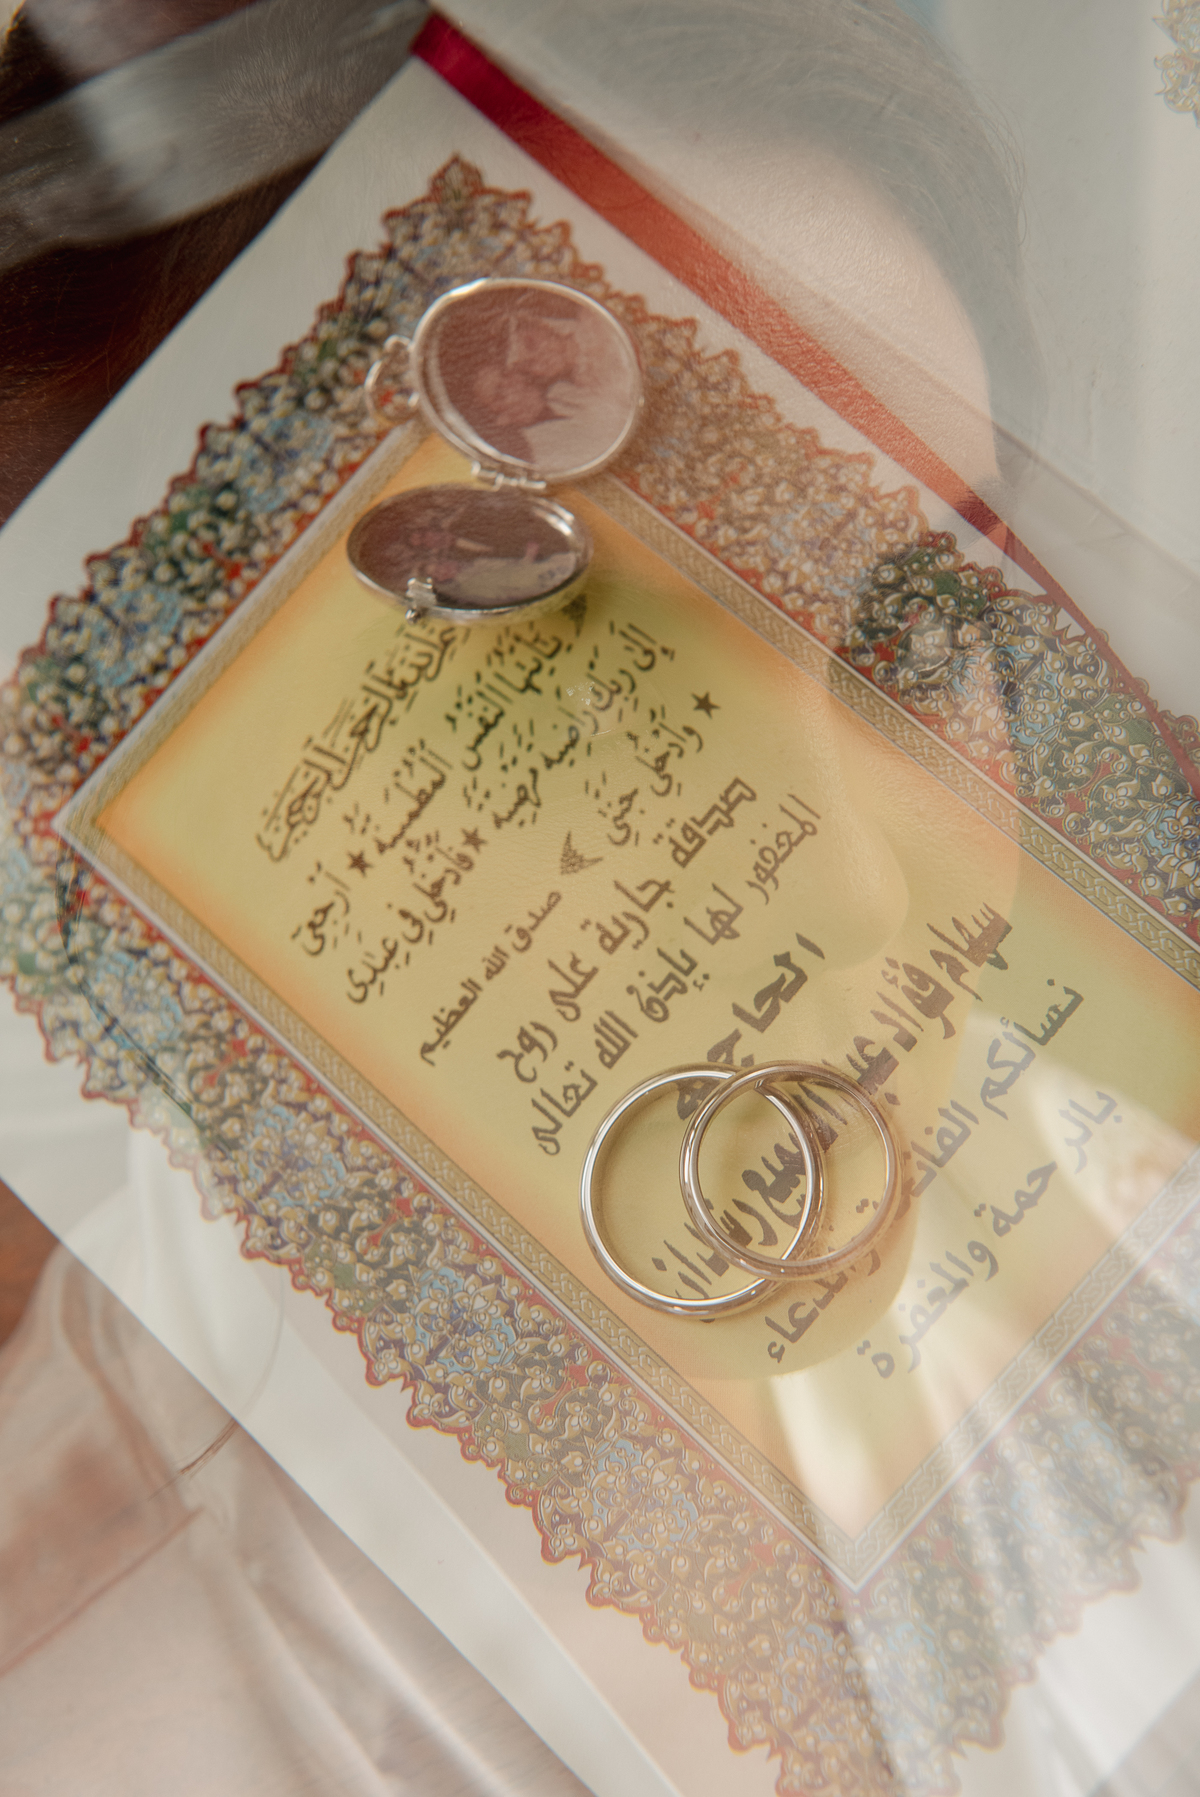 بسم الله الرحمن الرحيم
يَٰٓأَيَّتُهَا ٱلنَّفْسُ ٱلْمُطْمَئِنَّةُ ★ ٱرْجِعِىٓ
إِلَىٰ رَبِّكِ رَاضِيَةً مَّرْضِيَّةً ★ فَٱدْخُلِى فِى عِبَٰدِى
★ وَٱدْخُلِى جَنَّتِى
صدق الله العظيم
صدقة جارية على روح
المغفور لها بإذن الله تعالى
الحاجه
سهام فؤاد عبد السميع
نسألكم الفاتحة والدعاء
بالرحمة والمغفرة